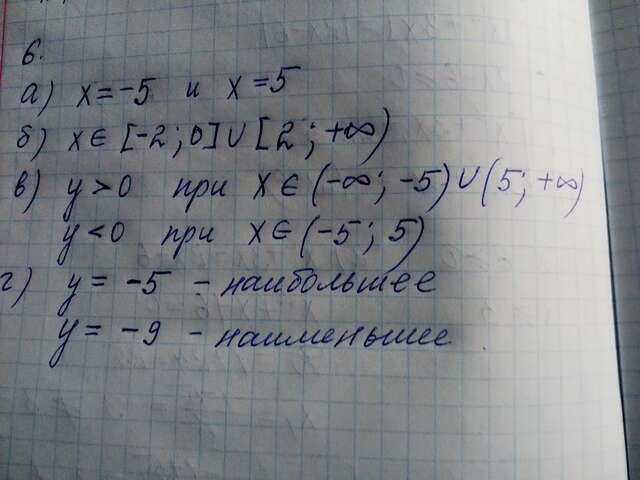 6.
а) x = -5 и x = 5
б) x ∈ [-2; 0] ∪ [2; +∞)
в) y > 0 при x ∈ (-∞; -5) ∪ (5; +∞)
y < 0 при x ∈ (-5; 5)
г) y = -5 - наибольшее
y = -9 - наименьшее